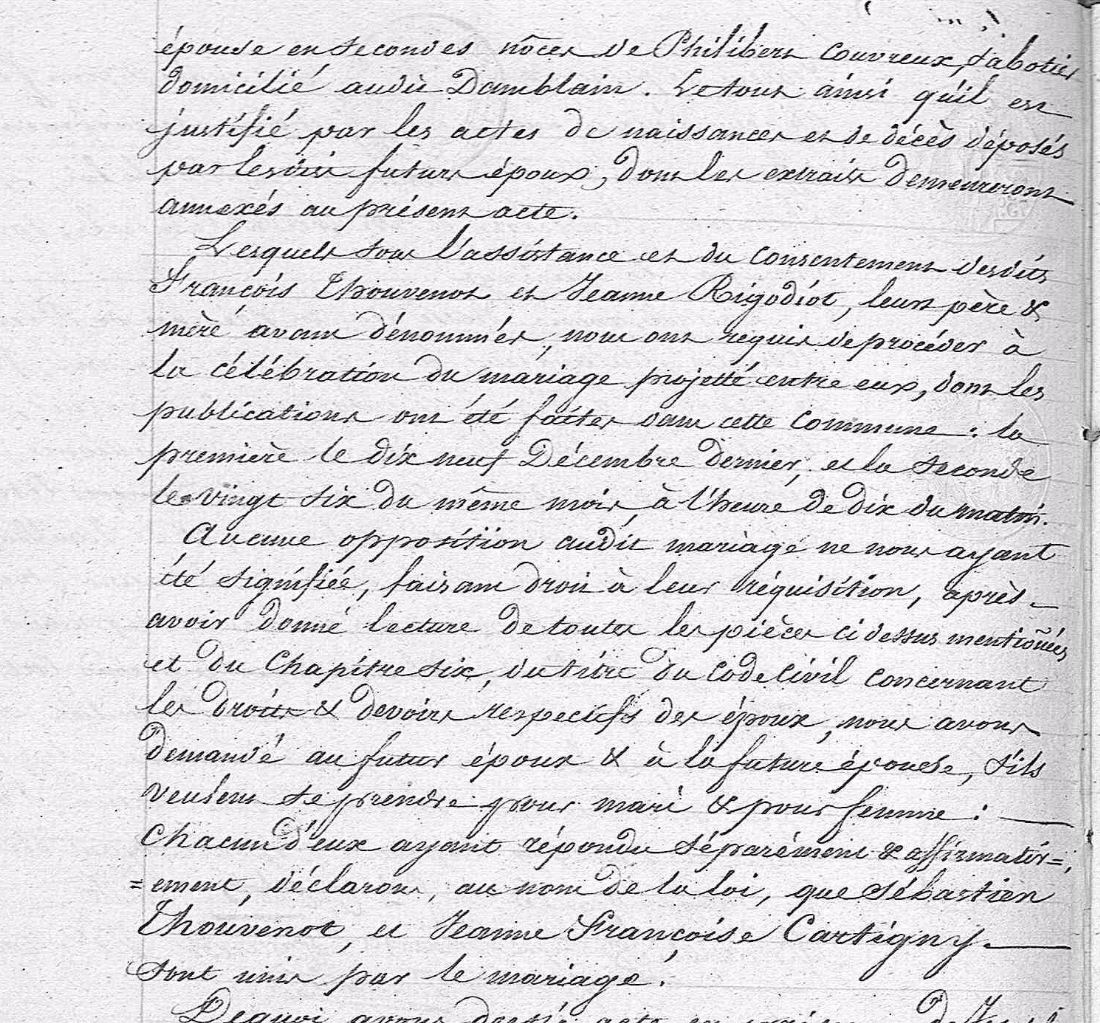 épouse en secondes nôces de Philibert Couvreux, sabotier
domicilié audit Damblain. Le tout ainsi qu'il est
justifié par les actes de naissances et de décès déposés
par lesdits futurs époux, dont les extraits demeureront
annexés au présent acte.
Lesquels sous l'assistance et du consentement desdits
François Thouvenot et Jeanne Rigodiot, leurs père &
mère avant dénommés, nous ont requis de procéder à
la célébration du mariage projetté entre eux, dont les
publications ont été faites dans cette Commune : la
première le dix neuf Décembre dernier, et la seconde
le vingt six du même mois, à l'heure de dix du matin.
Aucune opposition audit mariage ne nous ayant
été signifiée, faisant droit à leur réquisition, après
avoir donné lecture de toutes les pièces ci dessus mentionées
et du Chapitre six, du titre du Code Civil concernant
les droits & devoirs respectifs des époux, nous avons
demandé au futur époux & à la future épouse, s'ils
veulent se prendre pour mari & pour femme :
Chacun d'eux ayant répondu séparément & affirmativ=
=ement, déclarons, au nom de la loi, que Sébastien
Thouvenot, et Jeanne Françoise Cartigny
sont unis par le mariage.
Dequoi avons dressé acte en